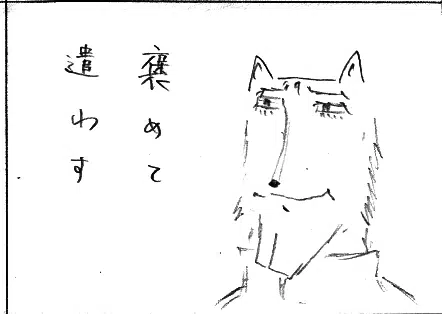 褒めて
遣わす